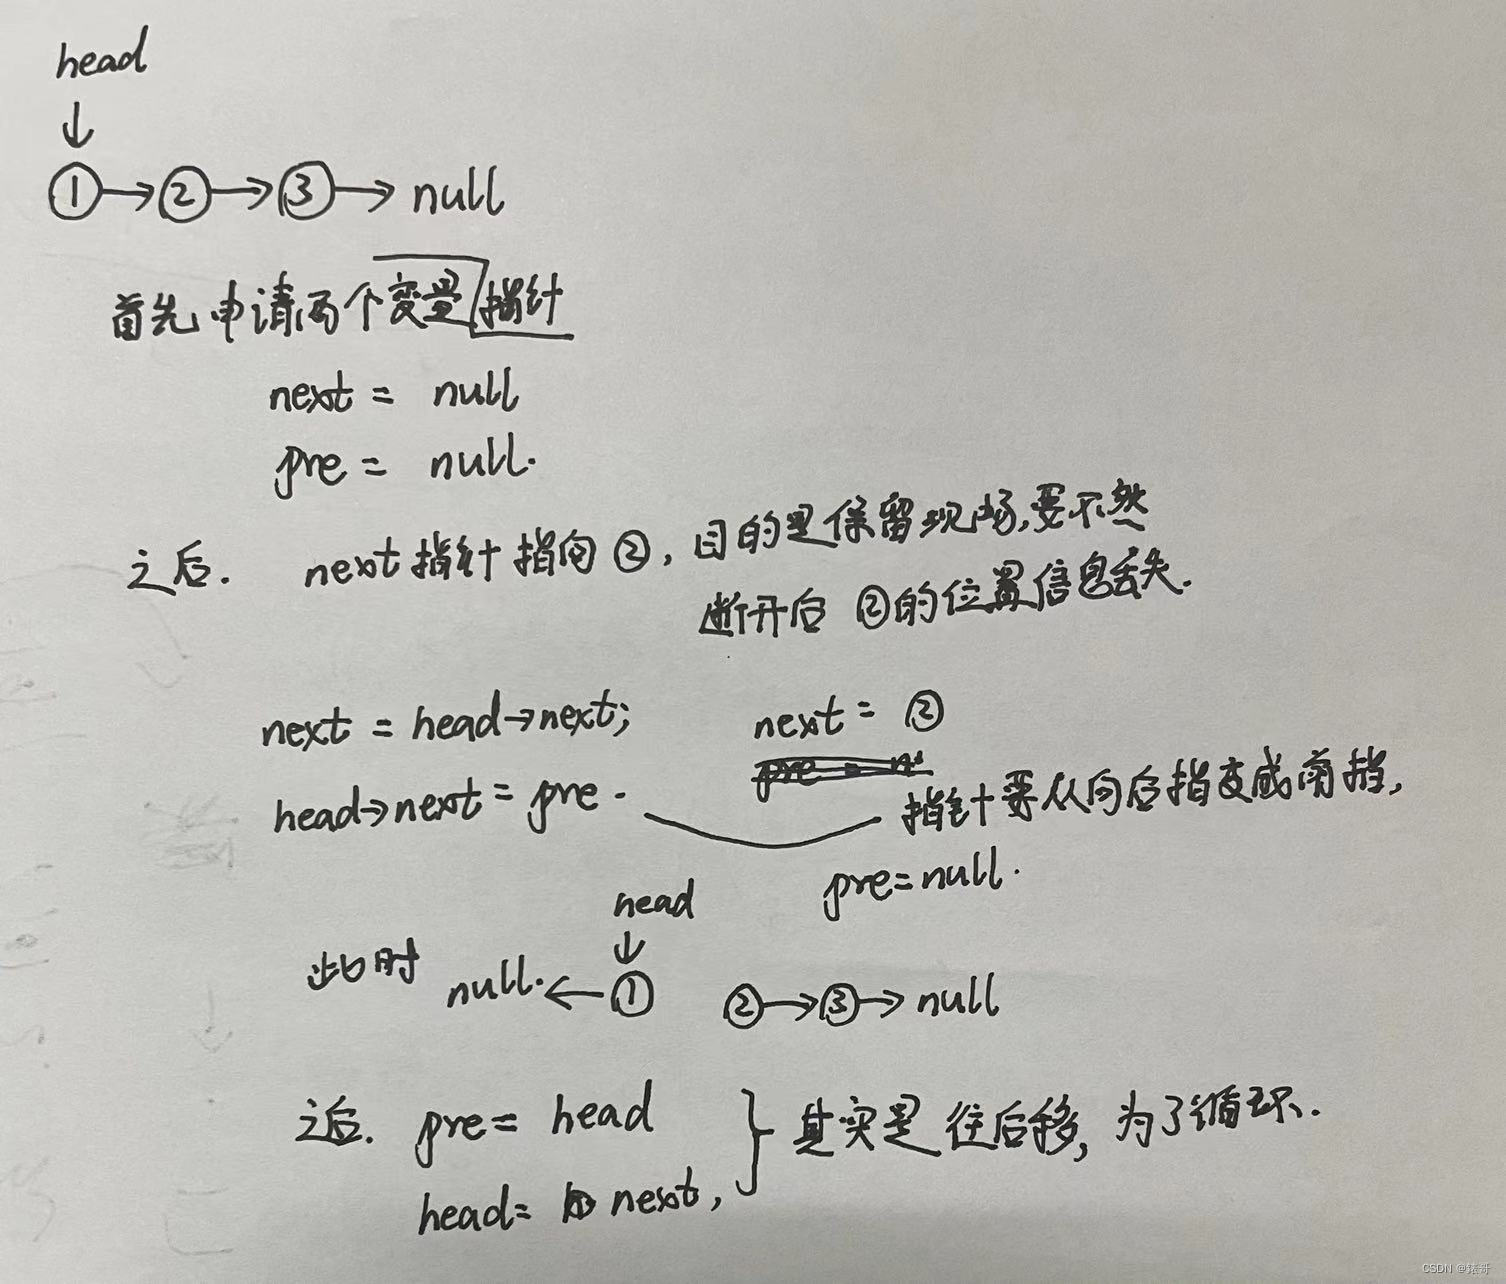 head
↓
①→②→③→null
首先申请两个变量指针
next = null
pre = null.
之后. next指针指向②,目的是保留现场,要不然
断开后 ②的位置信息丢失.
next = head→next; next = ②
head→next = pre. 指针要从向后指变成南指,
pre=null.
head
↓
此时 null.←① ②→③→null
之后. pre= head
head= next, 其实是往后移,为了循环.
CSDN @銥哥